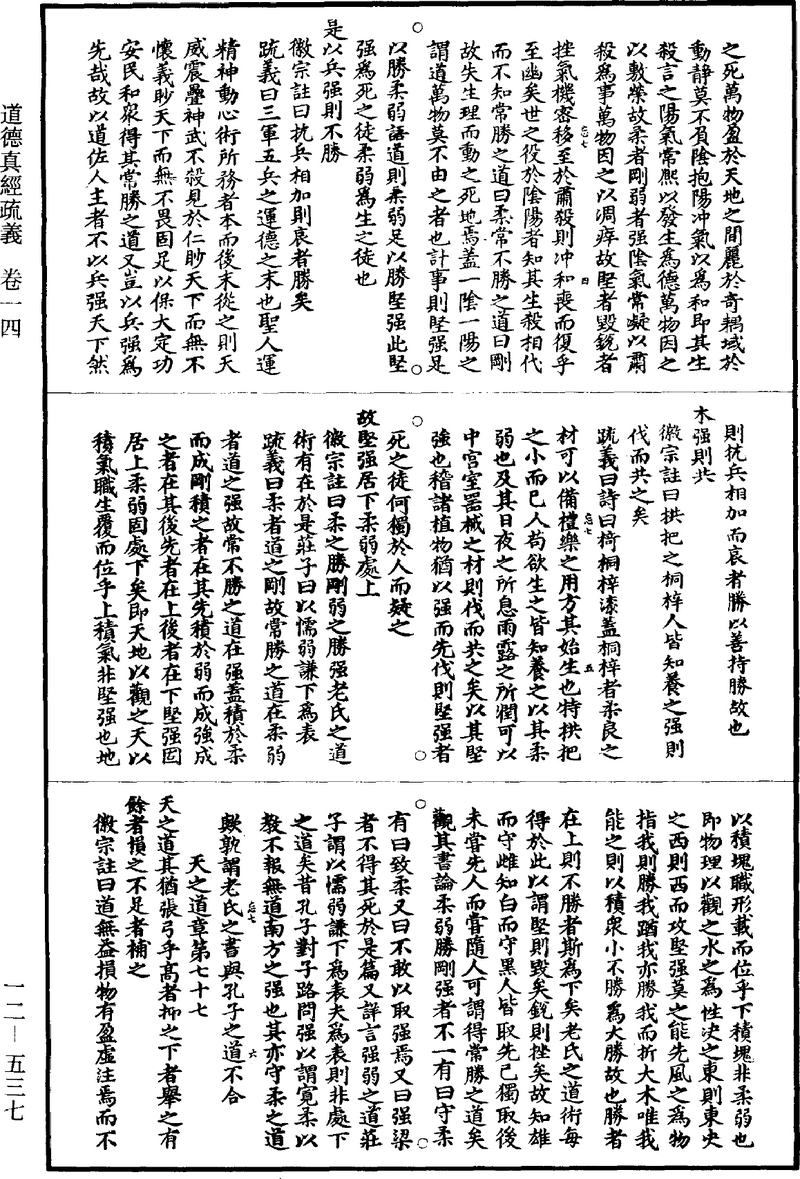 道德真經疏義　卷一四
一二—五三七
之死萬物盈於天地之間麗於奇耦域於
動靜莫不負陰抱陽沖氣以為和即其生
殺言之陽氣常熙以發生為德萬物因之
以敷榮故柔者剛弱者强陰氣常凝以肅
殺為事萬物因之以凋瘁故堅者毀銳者
挫氣機密移至於肅殺則沖和喪而復乎
至幽矣世之役於陰陽者知其生殺相代
而不知常勝之道曰柔常不勝之道曰剛
故失生理而動之死地焉蓋一陰一陽之
謂道萬物莫不由之者也計事則堅强是
以勝柔弱語道則柔弱足以勝堅强此堅
强為死之徒柔弱為生之徒也
是以兵强則不勝
徽宗註曰抗兵相加則哀者勝矣
疏義曰三軍五兵之運德之末也聖人運
精神動心術所務者本而後末從之則天
威震疊神武不殺見於仁眇天下而無不
懷義眇天下而無不畏固足以保大定功
安民和衆得其常勝之道又豈以兵强為
先哉故以道佐人主者不以兵强天下然
則抗兵相加而哀者勝以善持勝故也
木强則共
徽宗註曰拱把之桐梓人皆知養之强則
伐而共之矣
疏義曰詩曰椅桐梓漆蓋桐梓者柔良之
材可以備禮樂之用方其始生也特拱把
之小而已人苟欲生之皆知養之以其柔
弱也及其日夜之所息雨露之所潤可以
中宫室器械之材則伐而共之矣以其堅
強也稽諸植物猶以强而先伐則堅强者
死之徒何獨於人而疑之
故堅强居下柔弱處上
徽宗註曰柔之勝剛弱之勝强老氏之道
術有在於是莊子曰以懦弱謙下為表
疏義曰柔者道之剛故常勝之道在柔弱
者道之强故常不勝之道在强蓋積於柔
而成剛積之者在其先積於弱而成強成
之者在其後先者在上後者在下堅强固
居上柔弱固處下矣即天地以觀之天以
積氣職生覆而位乎上積氣非堅强也地
以積塊職形載而位乎下積塊非柔弱也
即物理以觀之水之為性决之東則東史
之西則西而攻堅强莫之能先風之為物
指我則勝我蹈我亦勝我而折大木唯我
能之則以積衆小不勝為大勝故也勝者
在上則不勝者斯為下矣老氏之道術每
得於此以謂堅則毀矣銳則挫矣故知雄
而守雌知白而守黑人皆取先己獨取後
未嘗先人而嘗隨人可謂得常勝之道矣
觀其書論柔弱勝剛强者不一有曰守柔
有曰致柔又曰不敢以取强焉又曰强梁
者不得其死於是篇又詳言强弱之道莊
子謂以懦弱謙下為表夫為表則非處下
之道矣昔孔子對子路問强以謂寬柔以
教不報無道南方之强也其亦守柔之道
歟孰謂老氏之書與孔子之道不合
天之道章第七十七
天之道其猶張弓乎高者抑之下者舉之有
餘者損之不足者補之
徽宗註曰道無益損物有盈虛注焉而不